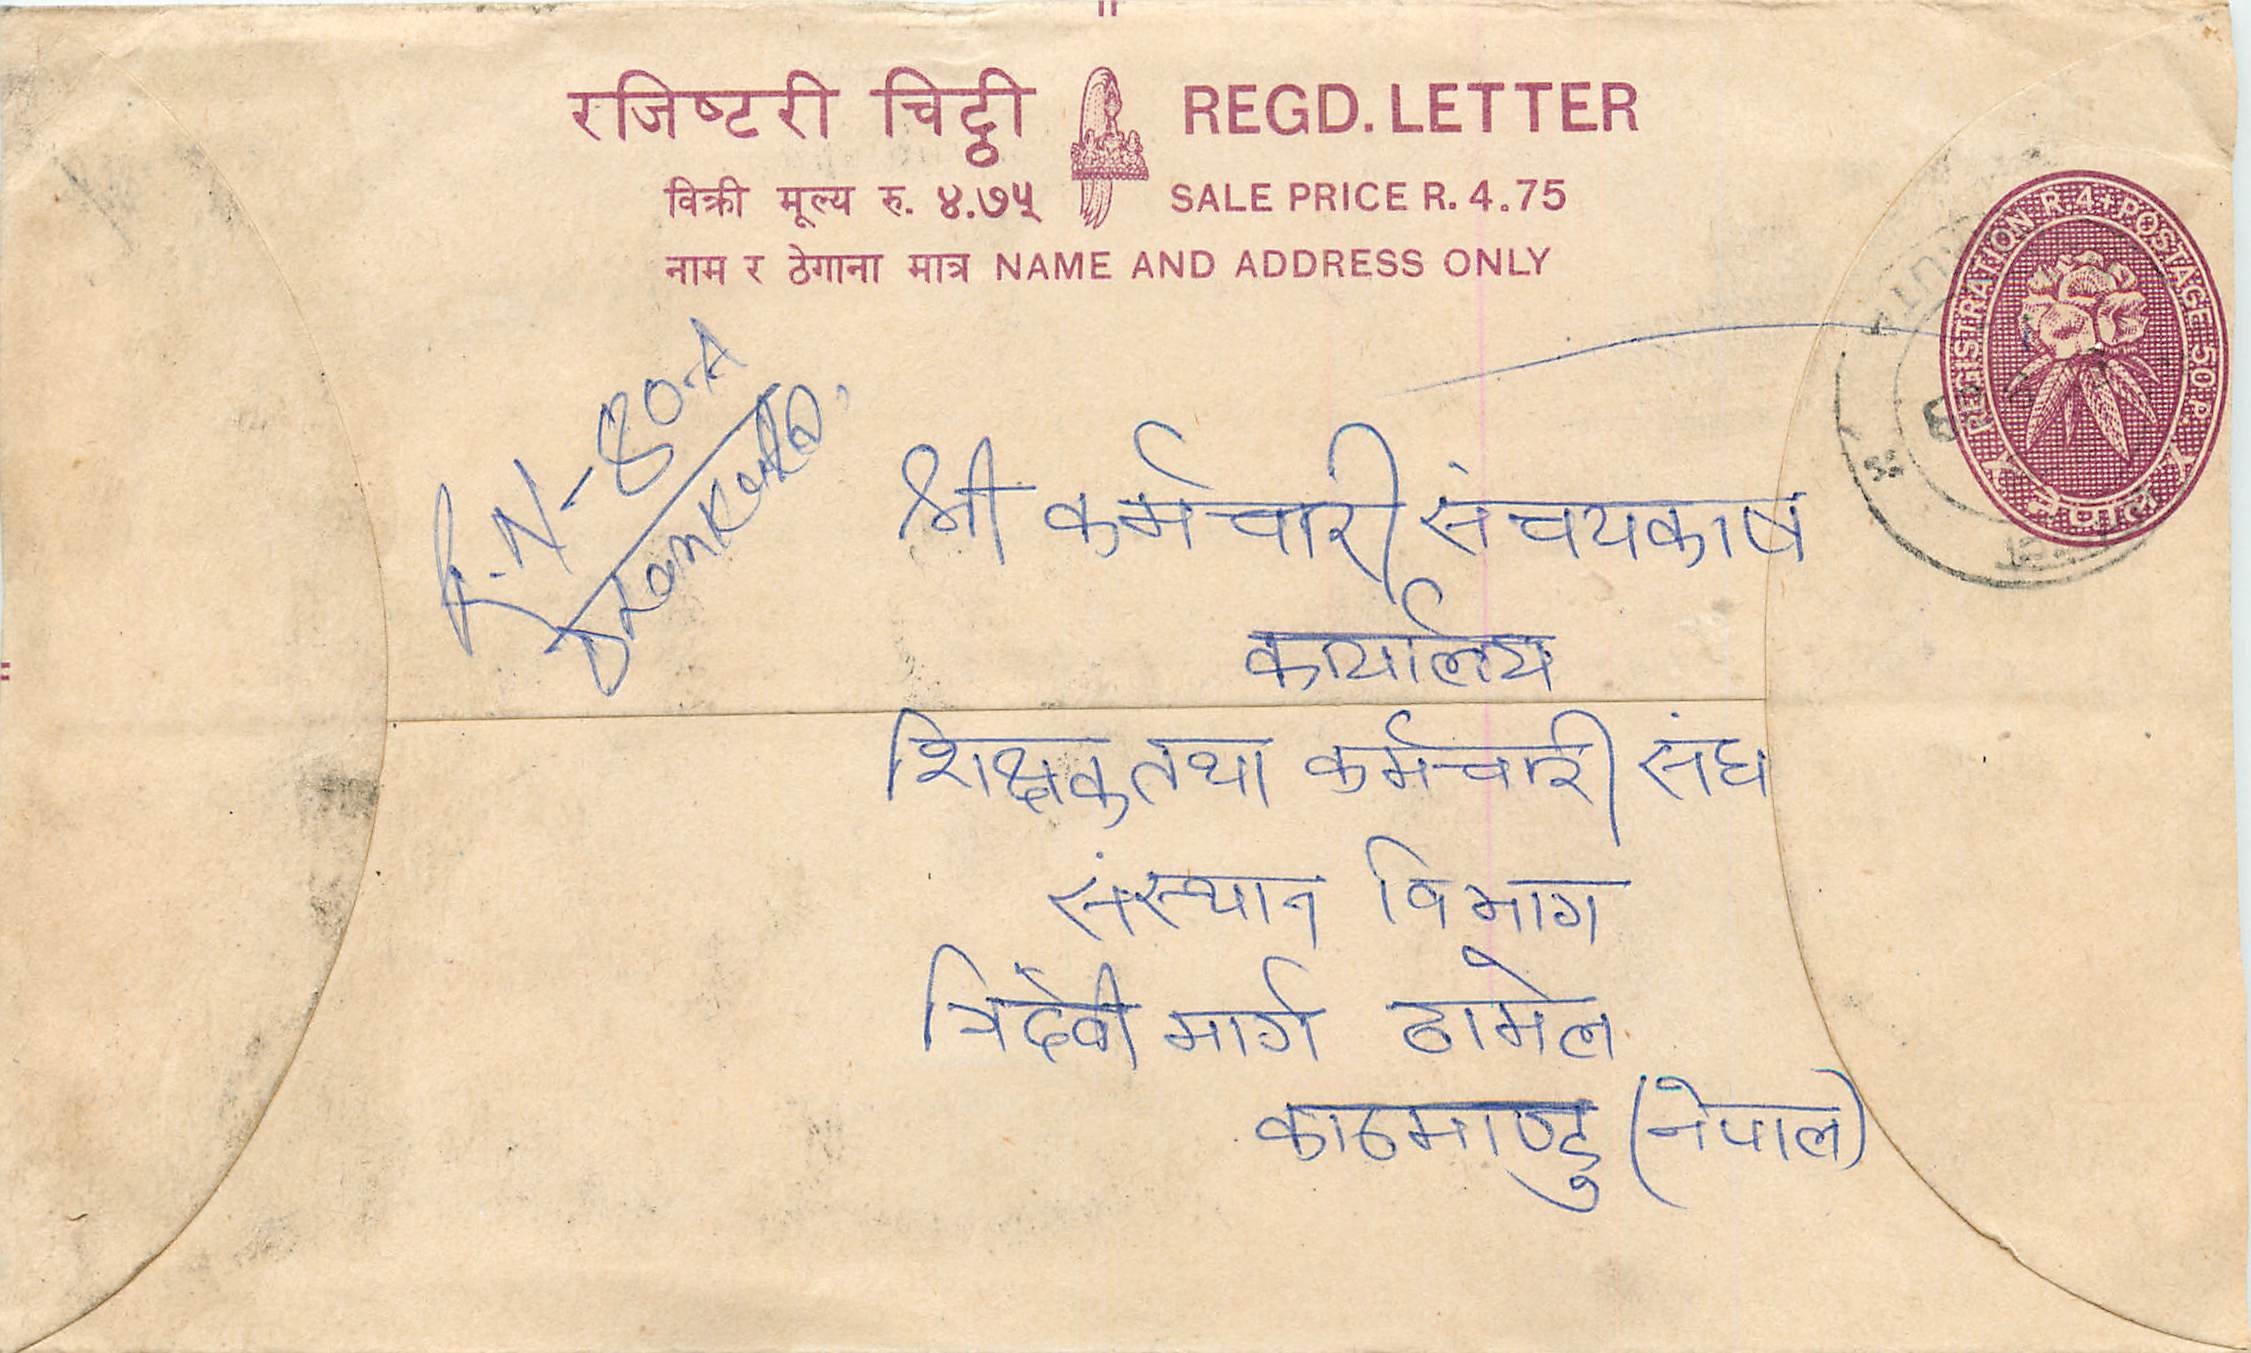 रजिष्टरी चिट्ठी REGD. LETTER
विक्री मूल्य रु. ४.७५ SALE PRICE R. 4.75
नाम र ठेगाना मात्र NAME AND ADDRESS ONLY
REGISTRATION R.4+POSTAGE 50 P.
नेपाल
R.N-80-A
श्री कर्मचारी संचयकोष
कार्यालय
शिक्षक तथा कर्मचारी संघ
संस्थान विभाग
त्रिदेवी मार्ग ठामेल
काठमाण्डु (नेपाल)